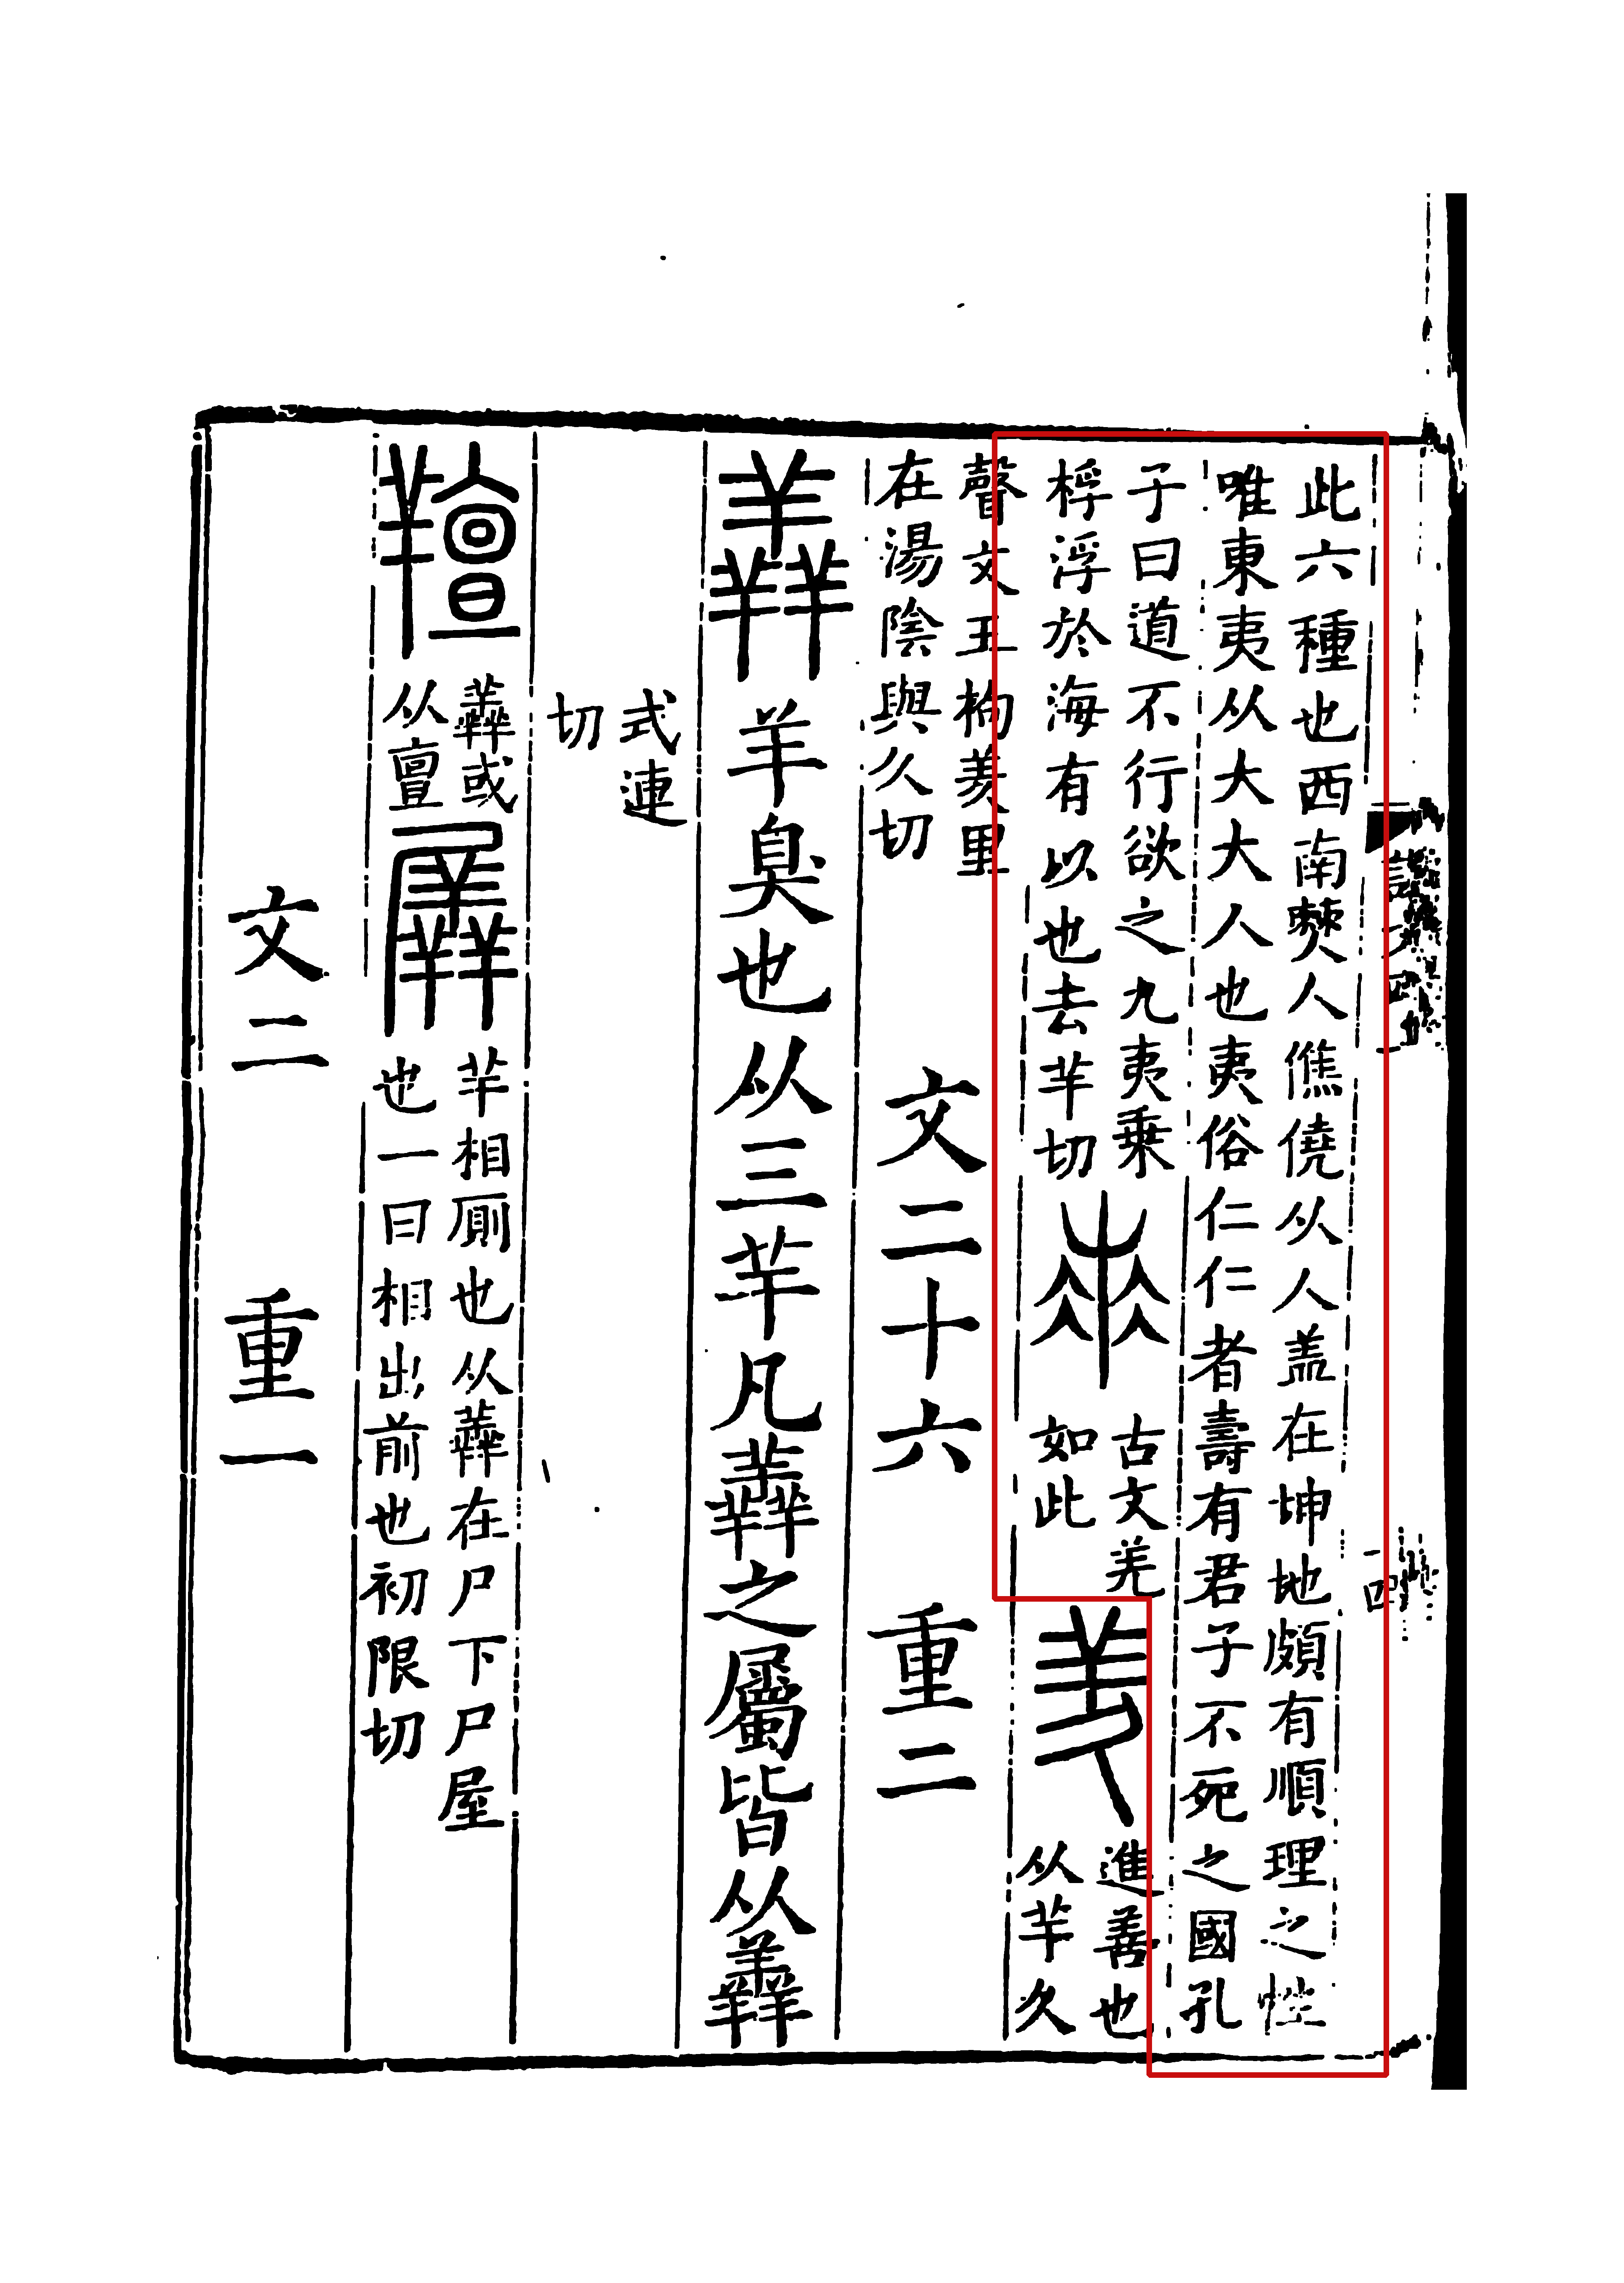 此六種也西南僰人僬僥从人盖在坤地頗有順理之性
唯東夷从大大人也夷俗仁仁者壽有君子不死之國孔
子曰道不行欲之九夷乗
桴浮於海有以也去羊切
古文羌
如此
羑
進善也
从羊久
聲文王拘羑里
在湯陰與久切
文二十六 重二
羴 羊臭也从三羊凡羴之屬皆从羴
式連
切
羶
羴或
从亶
羼
羊相厠也从羴在尸下尸屋
也一曰相出前也初限切
文二 重一